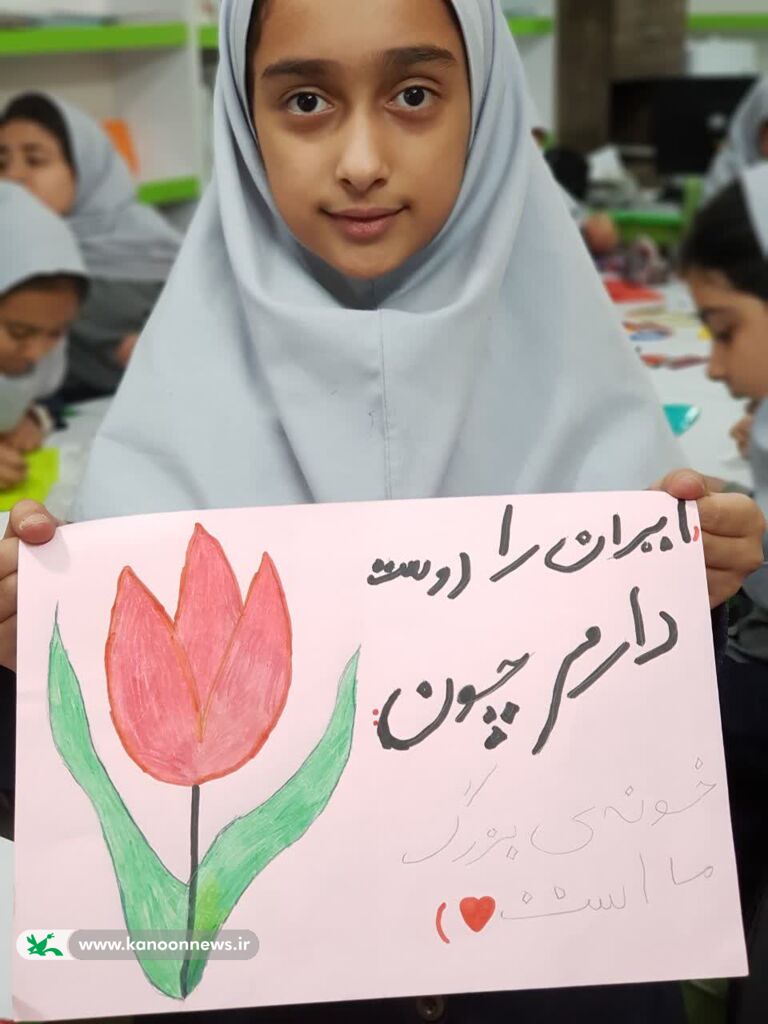 (ایران را دوست
دارم چون:
خونه‌ی بزرگ
ما است♥)
www.kanoonnews.ir